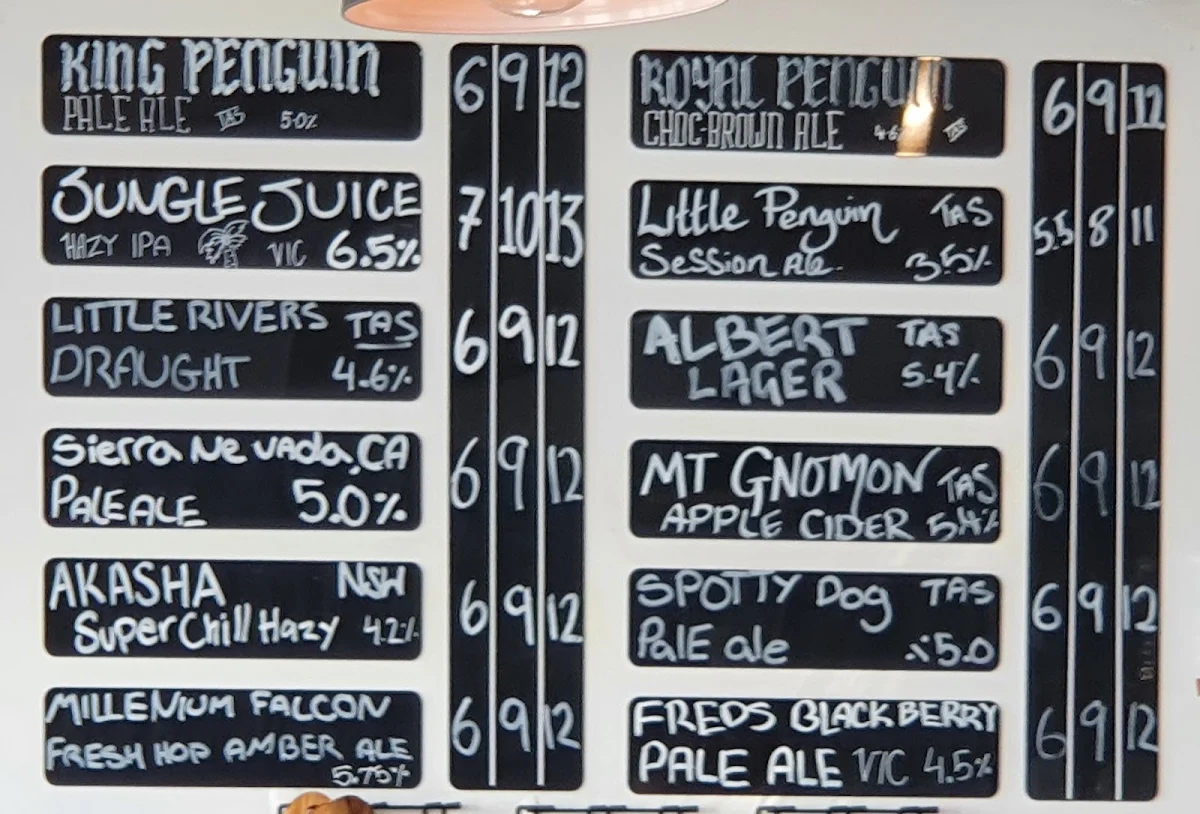 KING PENGUIN 6 9 12
PALE ALE TAS 5.0%
JUNGLE JUICE 7 10 13
HAZY IPA VIC 6.5%
LITTLE RIVERS TAS 6 9 12
DRAUGHT 4.6%
Sierra Nevada, CA 6 9 12
PALE ALE 5.0%
AKASHA NSW 6 9 12
Super Chill Hazy 4.2%
MILLENIUM FALCON 6 9 12
FRESH HOP AMBER ALE
5.75%
ROYAL PENGUIN 6 9 12
CHOC-BROWN ALE TAS
Little Penguin TAS 5.5 8 11
Session Ale 3.5%
ALBERT TAS 6 9 12
LAGER 5.4%
MT GNOMON TAS 6 9 12
APPLE CIDER 5.4%
SPOTTY Dog TAS 6 9 12
Pale ale %5.0
FREDS BLACKBERRY 6 9 12
PALE ALE VIC 4.5%